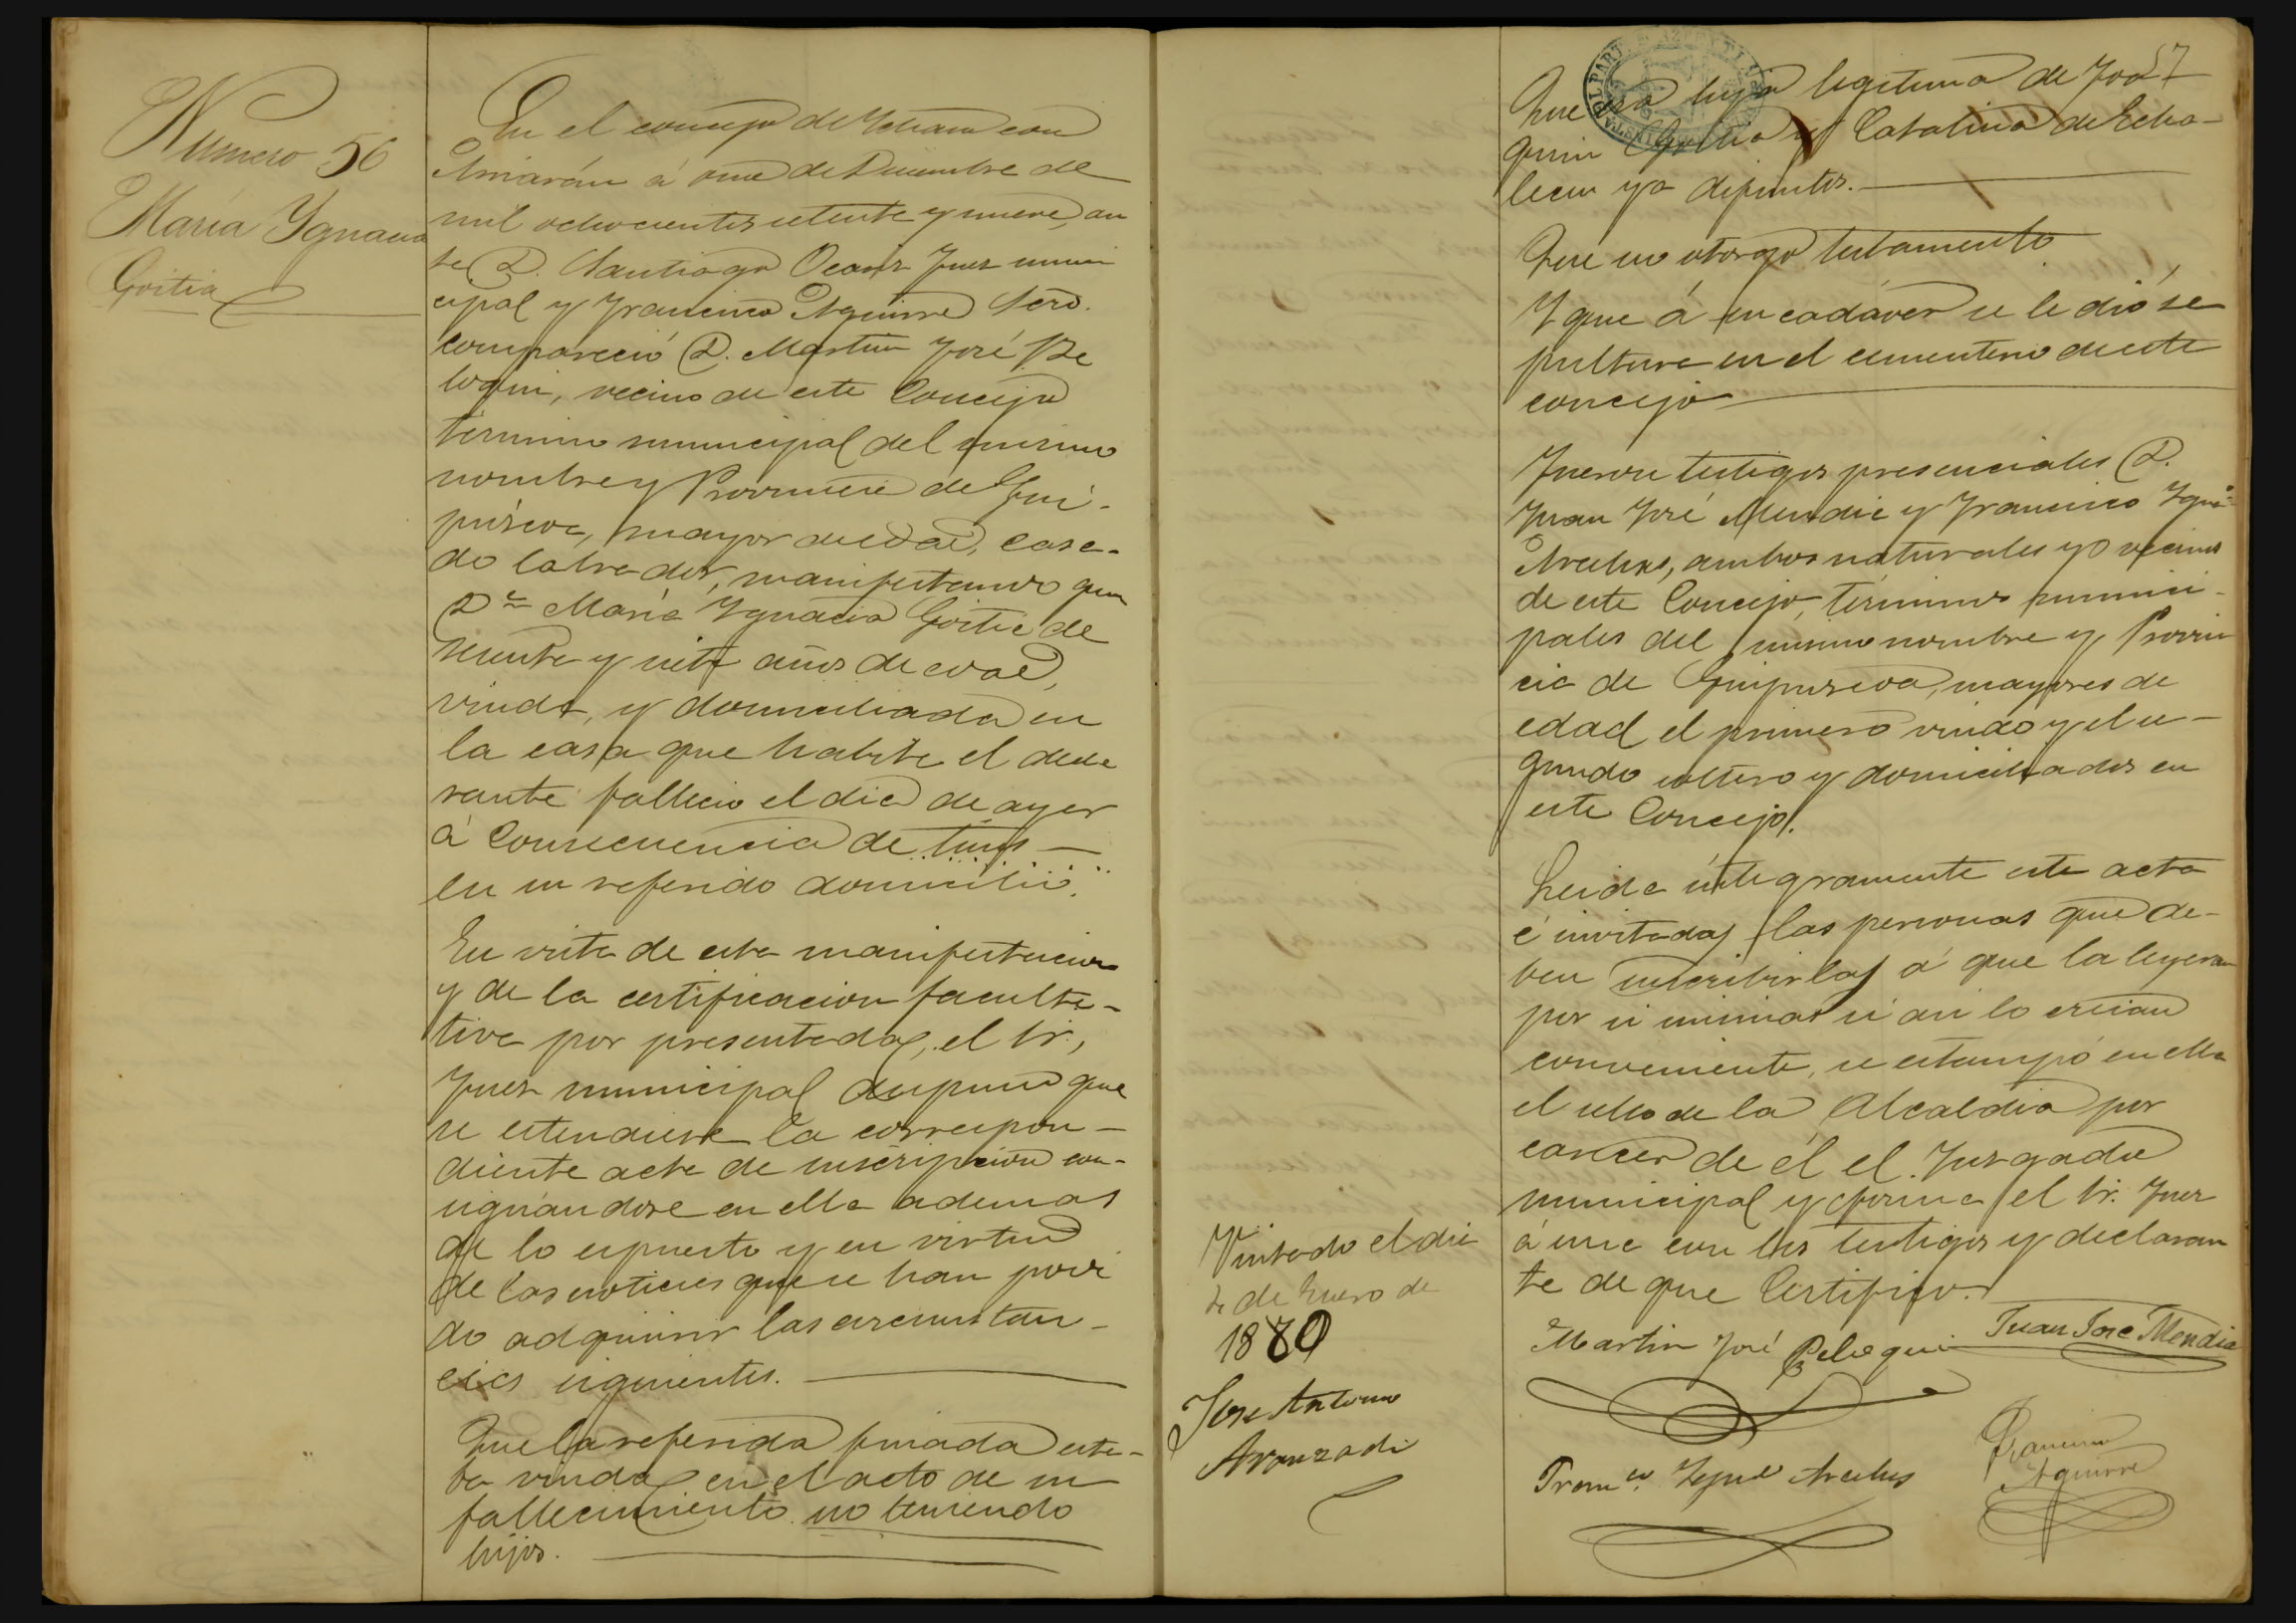 Numero 56
María Ygnacia
Goitia
En el concejo de Ichaso con
Arriarán á once de Diciembre de
mil ochocientos setenta y nueve, an
te D. Santiago Juez muni
cipal y Francisco Aguirre Scrio.
compareció D. Martin José Be
loqui, vecino de este Concejo
término municipal del mismo
nombre y Provincia de Gui-
púzcoa, mayor de edad, casa-
do labrador, manifestando que
Dª María Ygnacia Goitia de
y siete años de edad,
viuda, y domiciliada en
la casa que habita el decla
rante falleció el dia de ayer
á consecuencia de tisis —
en su referido domicilio.
En vista de esta manifestacion
y de la certificacion faculta-
tiva por presentadas, el Sr.,
Juez municipal dispuso que
se estendiese la correspon-
diente acta de inscripcion con-
signándose en ella ademas
de lo espuesto y en virtud
de las noticias que se han podi
do adquirir las circunstan-
cias siguientes.
Que la referida finada esta-
ba viuda en el acto de su
fallecimiento no teniendo
hijos.
Visitado el dia
de Enero de
1880
Jose Antonio
Aranzadi
57
Que era hija legitima de Joa-
quin Goitia y Catalina de Echa-
lecu ya difuntos.
Que no otorgó testamento
Y que á su cadáver se le dió se
pultura en el cementerio de este
concejo
Fueron testigos presenciales D.
Juan José Mendia y Francisco Ygnº
Arculus, ambos naturales y vecinos
de este Concejo, términos munici-
pales del mismo nombre y Provin
cia de Guipuzcoa, mayores de
edad el primero viudo y el se-
gundo soltero y domiciliados en
este Concejo.
Leida íntegramente este acta
é invitadas las personas que de-
ben suscribirlas á que la leyeran
por si mismas si asi lo creian
conveniente, se estampó en ella
el sello de la Alcaldia por
carecer de él el Juzgado
municipal y firma el Sr. Juez
á una con los testigos y declaran
te de que Certifico.
Martin José Beloqui
Juan Jose Mendia
Franco. Ygnº Arculus
Francisco
Aguirre